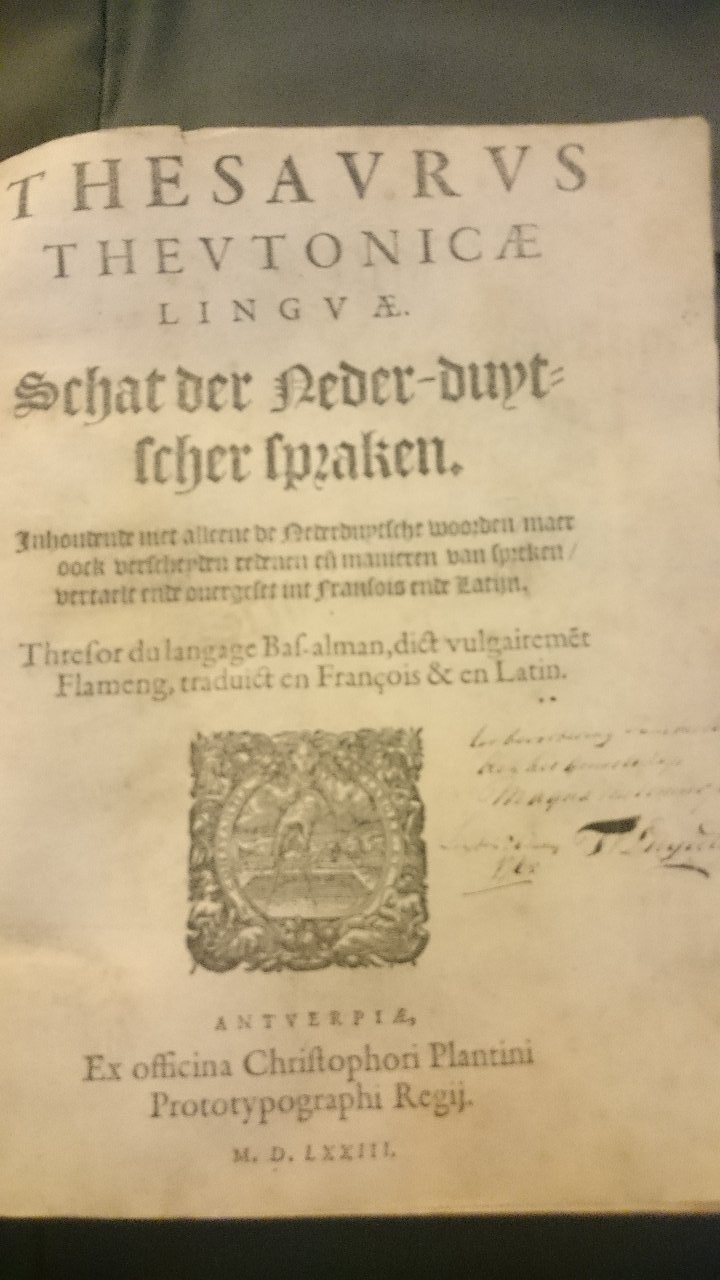 THESAVRVS
THEVTONICÆ
LINGVÆ.
Schat der Neder-duyt⸗
ſcher ſpꝛaken.
Inhoudende niet alleene de Nederduytſche wooꝛden/ maer
oock verſcheyden redenen eñ manieren van ſpꝛeken/
vertaelt ende ouergeſet int Franſois ende Latijn.
Threſor du langage Baſ-alman, dict vulgairemẽt
Flameng, traduict en François & en Latin.
ANTVERPIÆ,
Ex officina Chriſtophori Plantini
Prototypographi Regij.
M. D. LXXIII.